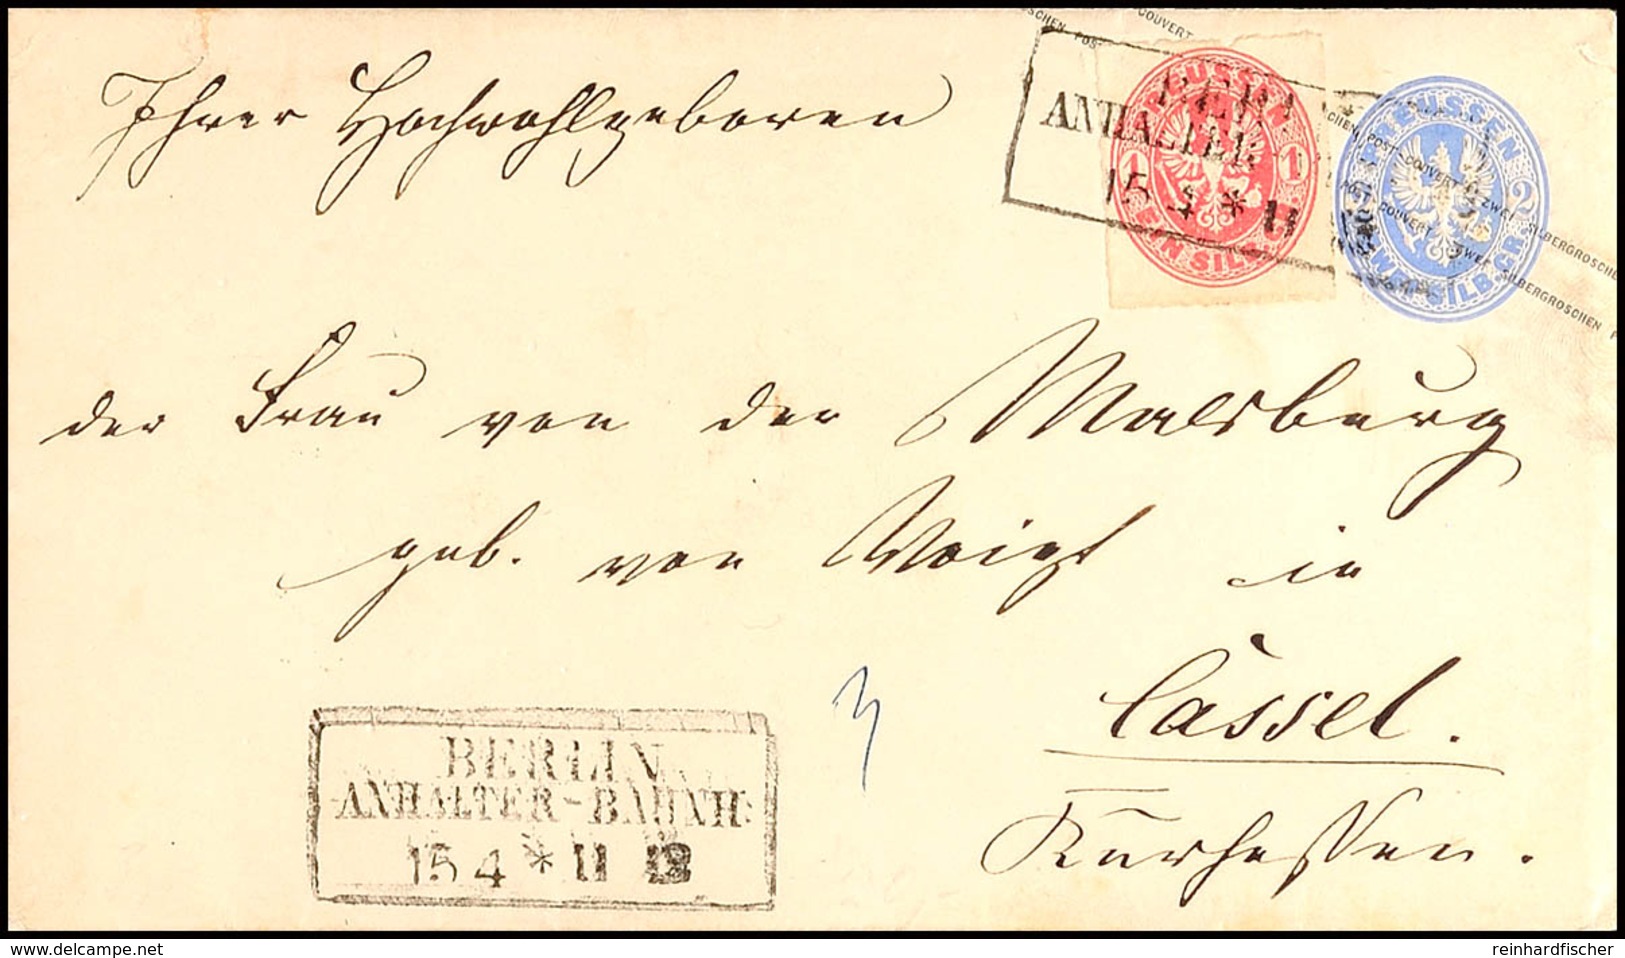 SCHEN POST-COUVERT
PREUSSEN
2
ZWEI SILB.GR.
1 1
EIN SILB
ANHALTER
15 4 * 11
POST-COUVERT ZWEI SILBERGROSCHEN
POST-COUVERT ZWEI SILBERGROSCHEN P
Ihrer Hochwohlgeboren
der Frau von der Malsburg
geb. von Voigt in
Cassel.
Kurhessen.
3
BERLIN
ANHALTER-BAHNH:
15 4 * 11 12
delcampe.net
reinhardfischer